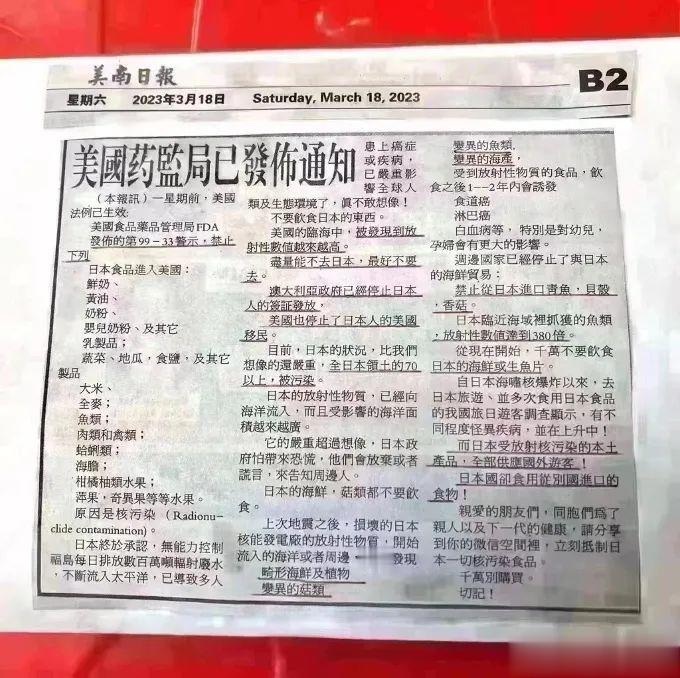 美南日報
B2
星期六 2023年3月18日 Saturday, March 18, 2023
美國药監局已發佈通知
（本報訊）一星期前，美國
法例己生效:
美國食品藥品管理局FDA
發佈的第99－33警示，禁止
下列
日本食品進入美國：
鮮奶、
黃油、
奶粉、
嬰兒奶粉、及其它
乳製品；
蔬菜、地瓜，食鹽，及其它
製品
大米、
全麥；
魚類；
肉類和禽類；
蛤蜊類；
海膽；
柑橘柚類水果；
萍果，奇異果等等水果。
原因是核污染（Radionu-
clide contamination)。
日本終於承認，無能力控制
福島每日排放數百萬噸輻射廢水
，不斷流入太平洋，已導致多人
患上癌症
或疾病，
已嚴重影
響全球人
類及生態環境了，眞不敢想像！
不要飲食日本的東西。
美國的臨海中，被發現到放
射性數值越來越高。
盡量能不去日本，最好不要
去。
澳大利亞政府已經停止日本
人的簽証發放，
美國也停止了日本人的美國
移民。
目前，日本的狀況，比我們
想像的還嚴重，全日本領土的70
以上，被污染。
日本的放射性物質，已經向
海洋流入，而且受影響的海洋面
積越來越廣。
它的嚴重超過想像，日本政
府怕帶來恐慌，他們會放棄或者
謊言，來告知周邊人。
日本的海鮮，菇類都不要飲
食。
上次地震之後，損壞的日本
核能發電廠的放射性物質，開始
流入的海洋或者周邊 發現
畸形海鮮及植物
變異的菇類
變異的魚類，
變異的海產，
受到放射性物質的食品，飲
食之後1－－2年内會誘發
食道癌
淋巴癌
白血病等，特別是對幼兒，
孕婦會有更大的影響。
週邊國家已經停止了與日本
的海鮮貿易：
禁止從日本進口青魚，貝殼
，香菇。
日本臨近海域裡抓獲的魚類
，放射性數值達到380倍。
從現在開始，千萬不要飲食
日本的海鮮或生魚片。
自日本海嘯核爆炸以來，去
日本旅遊、並多次食用日本食品
的我國旅日遊客調查顯示，有不
同程度怪異疾病，並在上升中！
而日本受放射核污染的本土
產品，全部供應國外遊客！
日本國卻食用從別國進口的
食物！
親愛的朋友們，同胞們爲了
親人以及下一代的健康，請分享
到你的微信空間裡，立刻抵制日
本一切核污染食品。
千萬別購買。
切記！